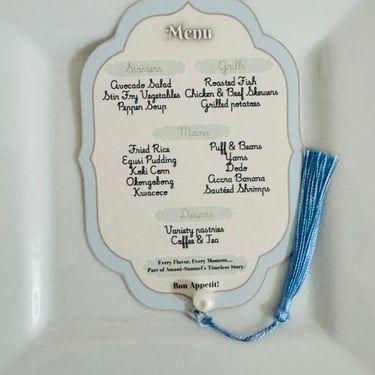 Menu
Starters
Avocado Salad
Stir Fry Vegetables
Pepper Soup
Grills
Roasted Fish
Chicken & Beef Skewers
Grilled potatoes
Mains
Fried Rice
Egusi Pudding
Koki Corn
Okongobong
Kwacoco
Puff & Beans
Yams
Dodo
Accra Banana
Sautéed Shrimps
Deserts
Variety pastries
Coffee & Tea
Every Flavor, Every Moment....
Part of Amani-Samuel's Timeless Story.
Bon Appetit!